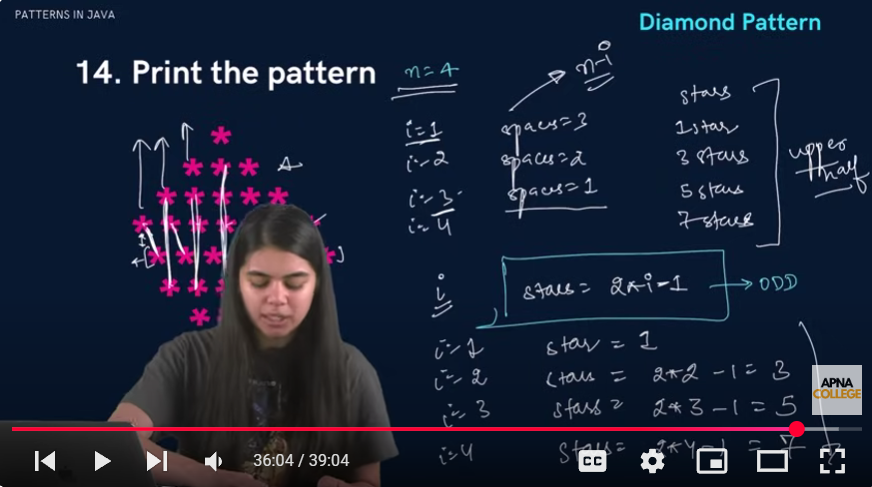 PATTERNS IN JAVA
Diamond Pattern
14. Print the pattern
n=4
n-i
stars
i=1 spaces=3 1 star
i=2 spaces=2 3 stars
i=3 spaces=1 5 stars
i=4 7 stars
upper half
i stars = 2*i-1 → ODD
i=1 star = 1
i=2 stars = 2*2-1 = 3
i=3 stars = 2*3-1 = 5
i=4 stars = 2*4-1 = 7
APNA
COLLEGE
36:04 / 39:04
CC